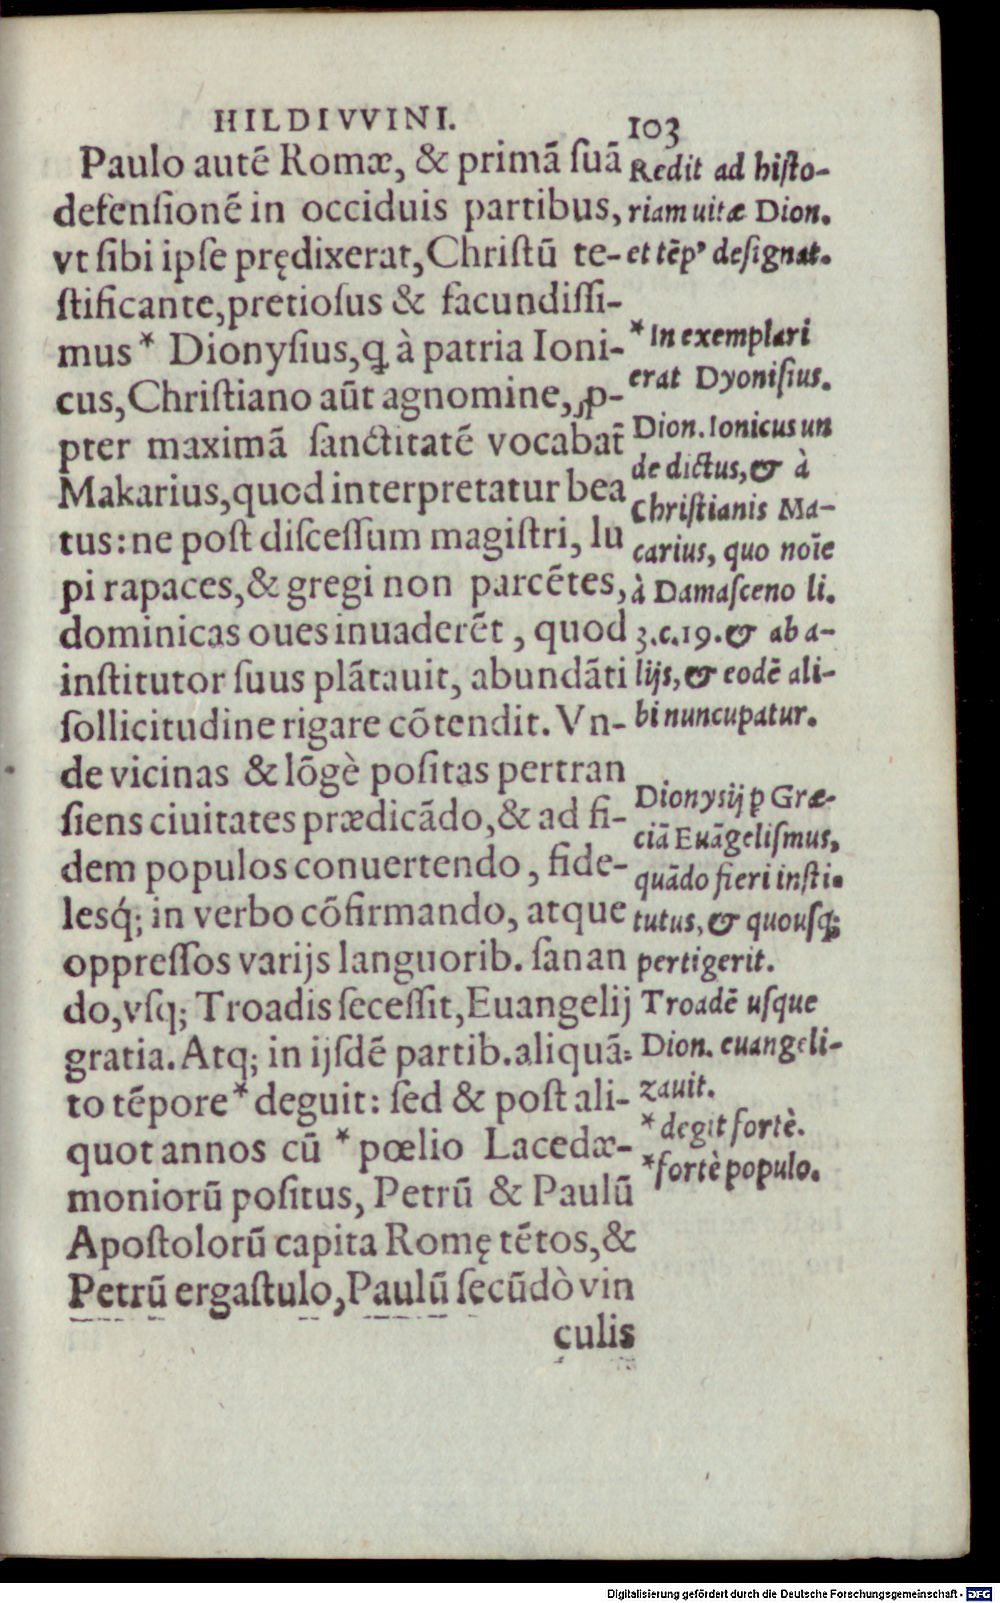 HILDIVVINI.
103
Paulo autē Romæ, & primā ſuā
defenſionē in occiduis partibus,
vt ſibi ipſe prędixerat, Chriſtū te-
ſtificante, pretioſus & facundiſſi-
mus* Dionyſius, ꝗ à patria Ioni-
cus, Chriſtiano aūt agnomine, ꝓ-
pter maximā ſanctitatē vocabat̄
Makarius, quod interpretatur bea
tus: ne poſt diſceſſum magiſtri, lu
pi rapaces, & gregi non parcētes,
dominicas oues inuaderēt, quod
inſtitutor ſuus plātauit, abundāti
ſollicitudine rigare cōtendit. Vn-
de vicinas & lōgè poſitas pertran
ſiens ciuitates prædicādo, & ad fi-
dem populos conuertendo, fide-
lesq́; in verbo cōfirmando, atque
oppreſſos varijs languorib. ſanan
do, vſq; Troadis ſeceſſit, Euangelij
gratia. Atq; in ijſdē partib. aliquā-
to tēpore* deguit: ſed & poſt ali-
quot annos cū *pœlio Lacedæ-
moniorū poſitus, Petrū & Paulū
Apoſtolorū capita Romę tētos, &
Petrū ergaſtulo, Paulū ſecūdò vin
culis
Redit ad hiſto-
riam uitæ Dion.
et tēpꝰ deſignat.
*In exemplari
erat Dyoniſius.
Dion. Ionicus un
de dictus, & à
Chriſtianis Ma-
carius, quo noīe
à Damaſceno li.
3.c.19. & ab a-
lijs, & eodē ali-
bi nuncupatur.
Dionysij ꝑ Græ-
ciā Euāgeliſmus,
quādo fieri inſti-
tutus, & quouſq;
pertigerit.
Troadē uſque
Dion. euangeli-
zauit.
*degit fortè.
*fortè populo.
Digitalisierung gefördert durch die Deutsche Forschungsgemeinschaft - DFG